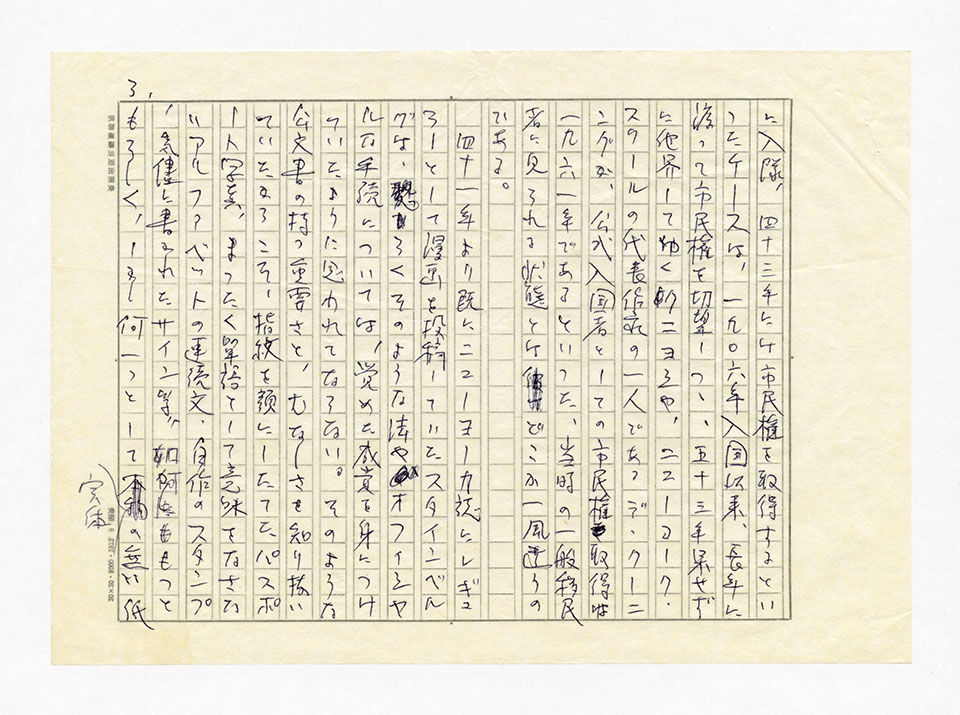 に入隊、四十三年には市民権を取得するとい
ったケースは、一九〇六年入国以来、長年に
渡って市民権を切望しつつ、五十三年果せず
に他界して ゴーキーや、ニューヨーク・
スクールの代表作家の一人であるデ・クーニ
ングが、公式入国者としての市民権取得は
一九六一年であるといった、当時の一般移民
者に見られる状態とはどこか一風違うの
である。
四十一年より既にニューヨーカ誌にレギュ
ラーとして漫画を投稿していたスタインベル
グは、 らくそのような法やオフィシャ
ルな手続については、覚めた感覚を身につけ
ていたように思われてならない。そのような
公文書の持つ重要さと、むなしさを知り抜い
ていたからこそ、指紋を顔にしたてたパスポ
ート写真、まったく単語として意味をなさな
いアルファベットの連続文、自作のスタンプ
、丹念に書かれたサイン等、如何にももっと
もらしく、しかし何一つとして実体の無い紙
3,